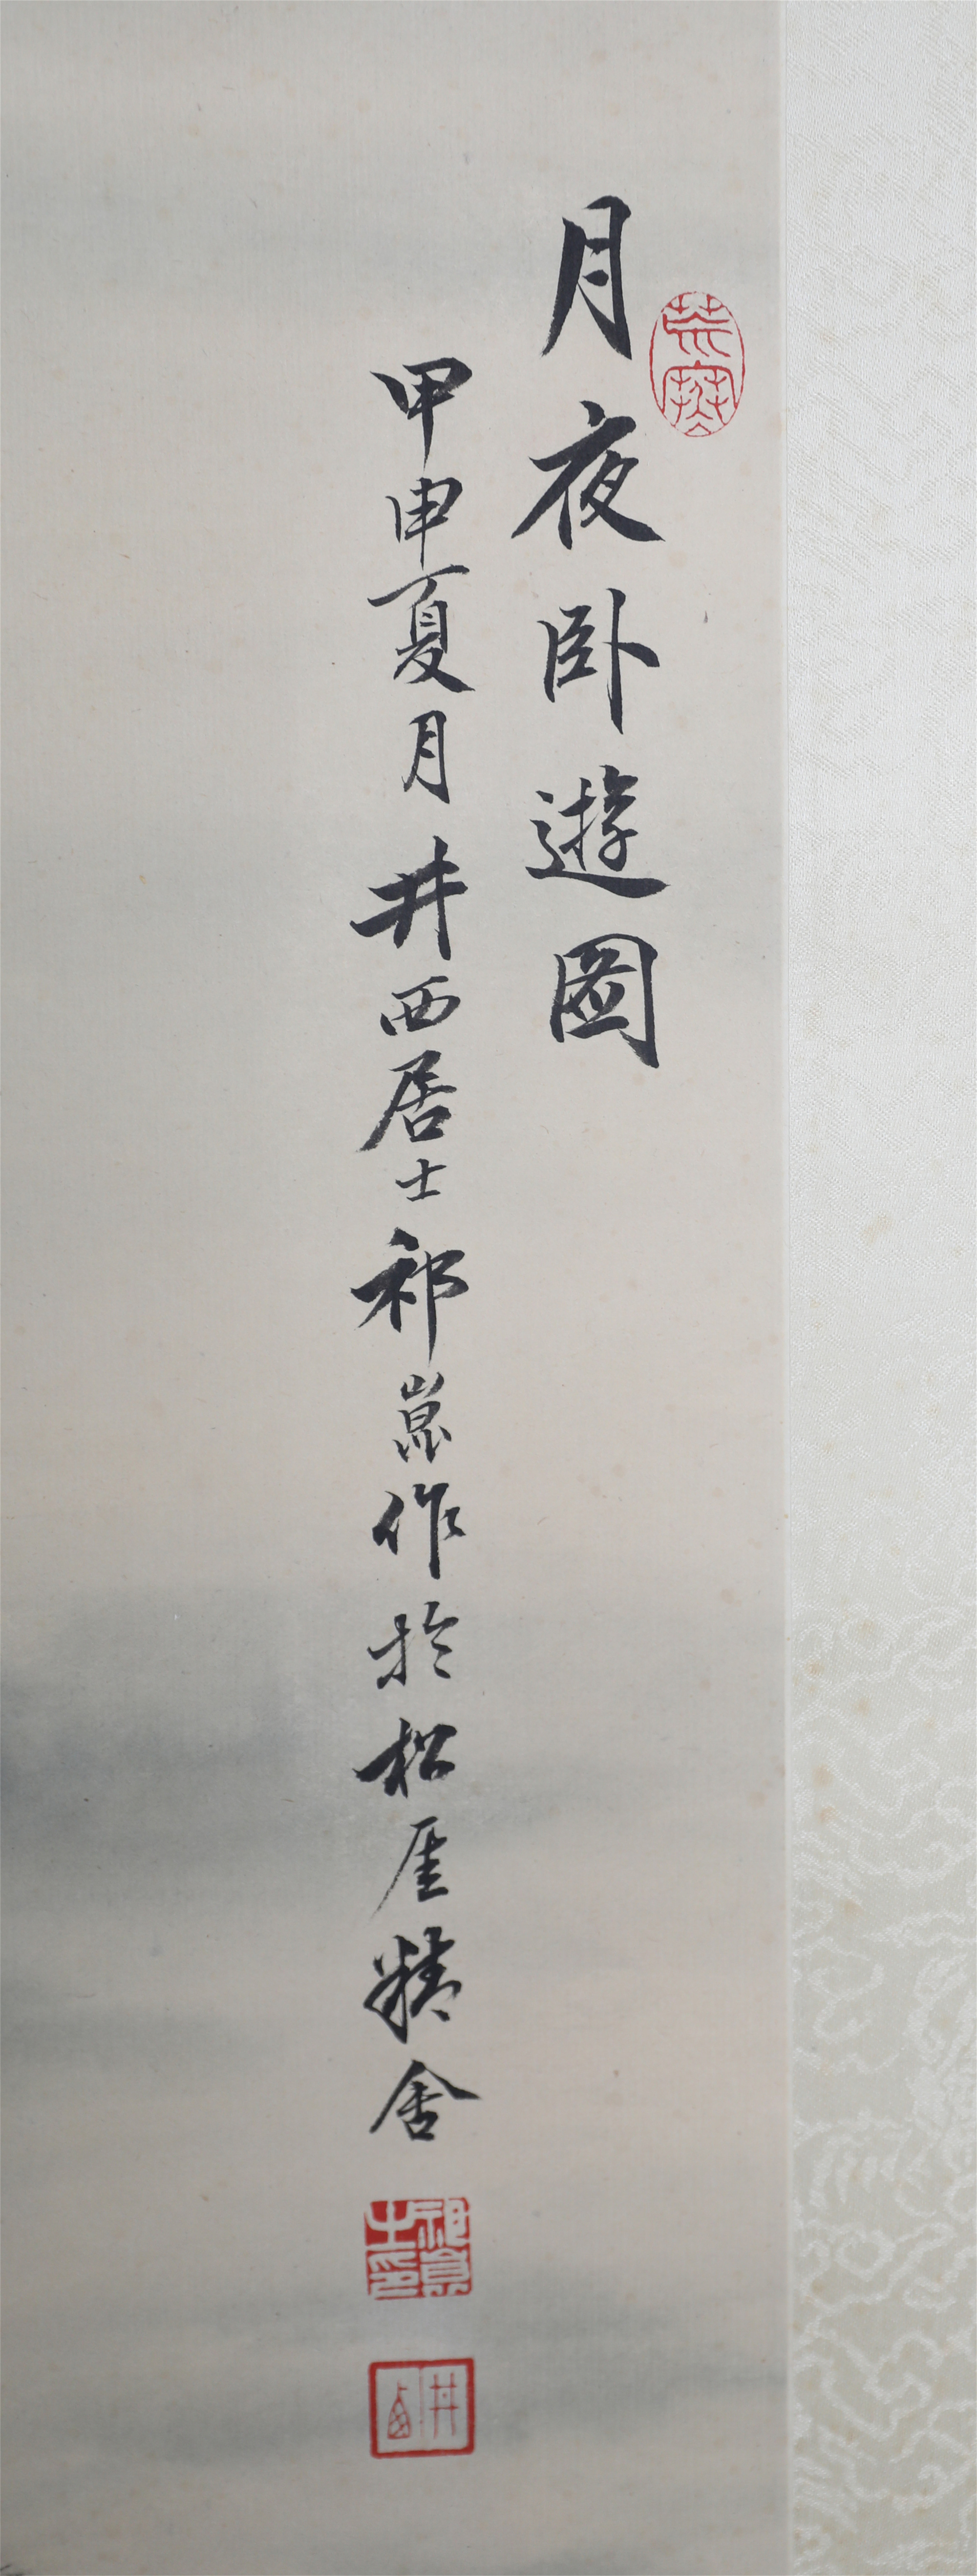 月夜卧遊圖
甲申夏月井西居士祁崑作於松厓精舍
祁崑之印
井西